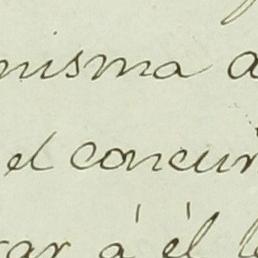 misma a
el concur
gar á él l